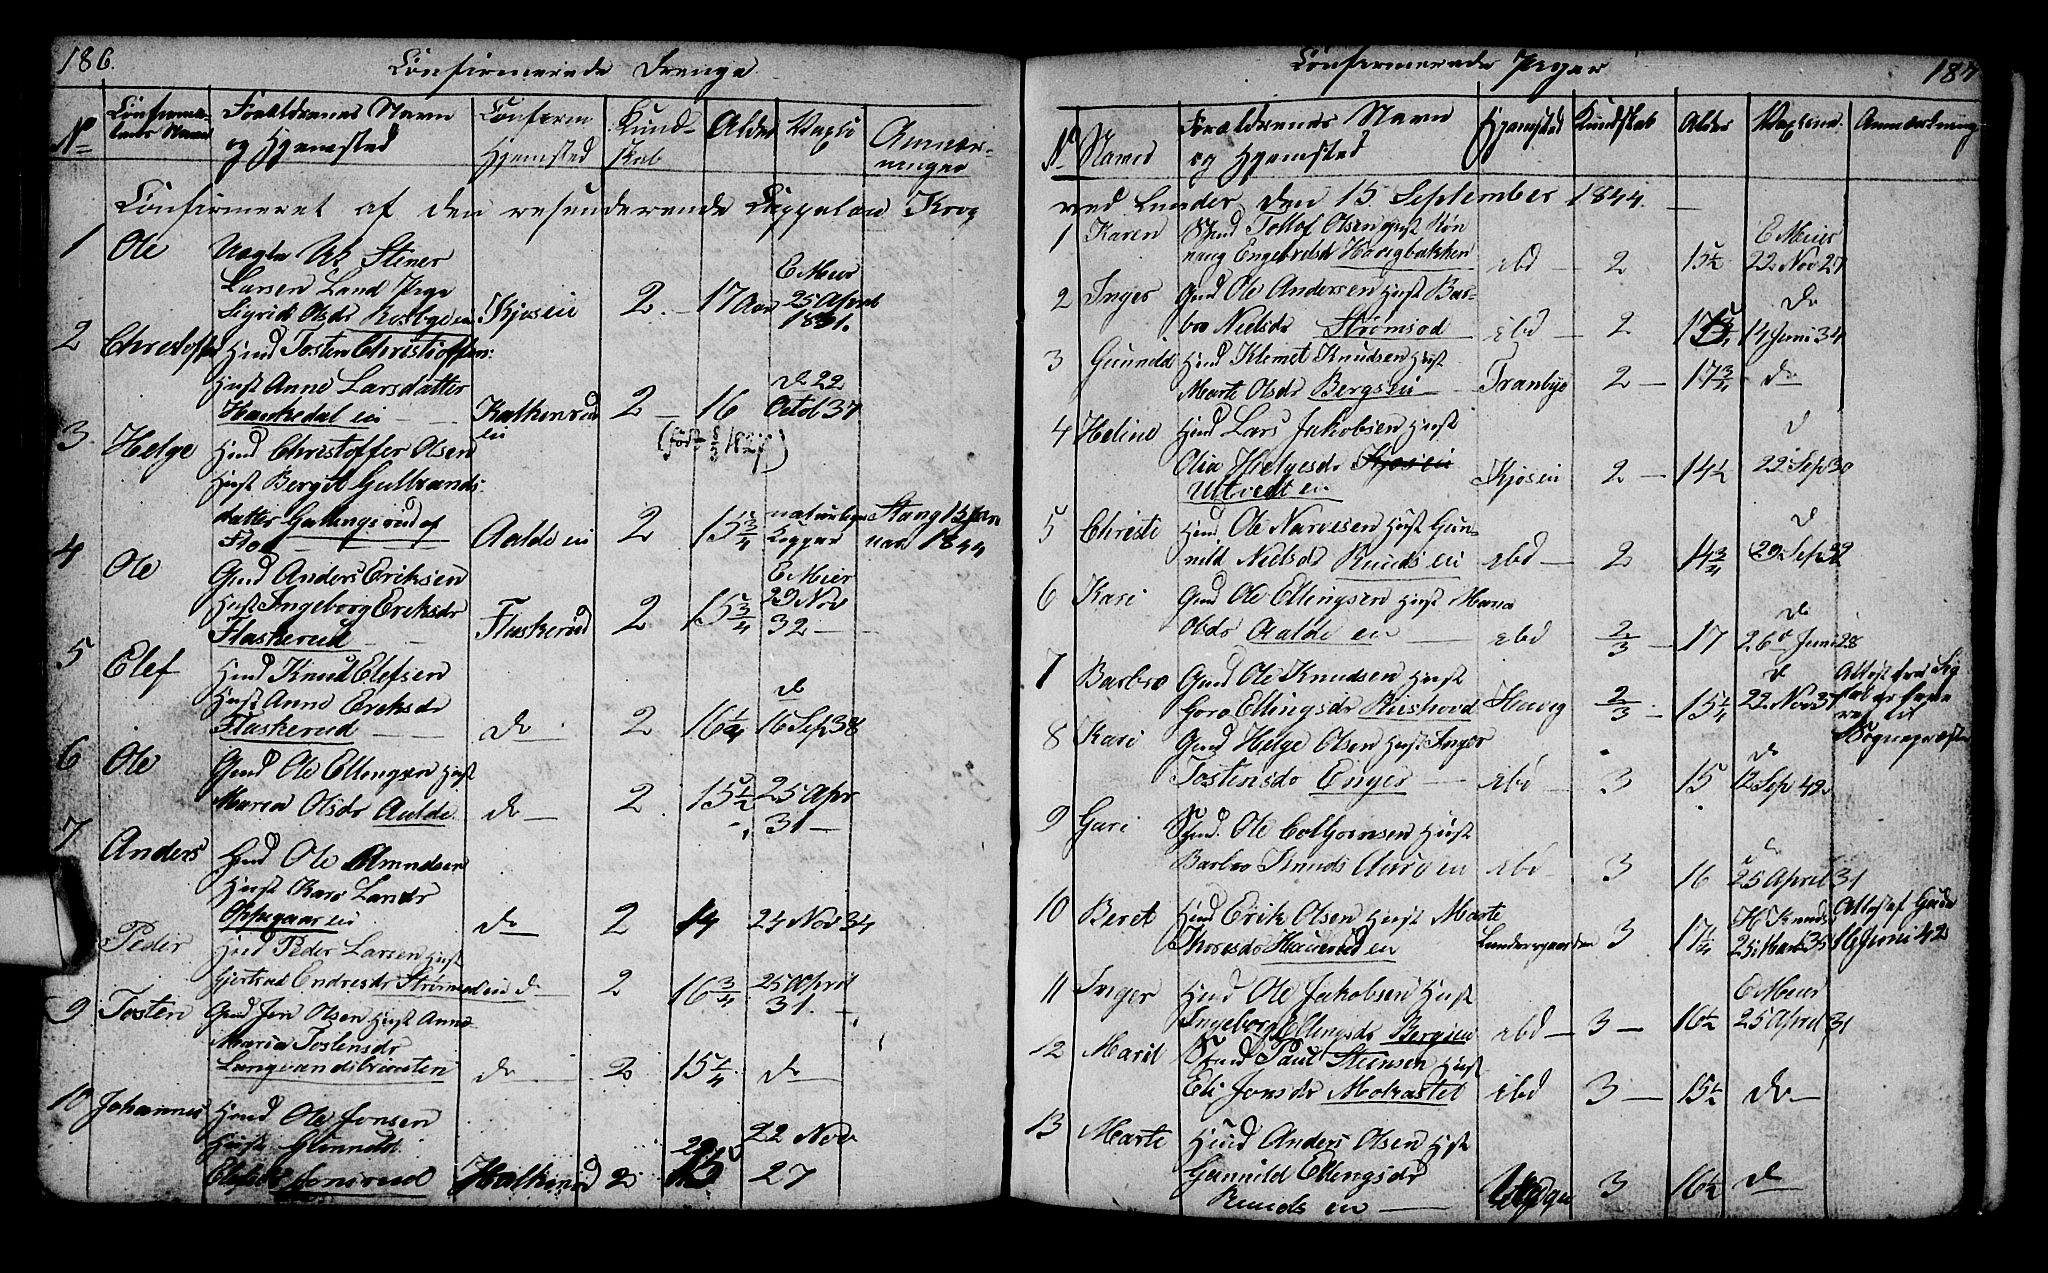 186.
Confirmerede Drenge
No
Confirman-
tens Navn
Forældrenes Navn
og Hjemsted
Confirm
Hjemsted
Kund-
skab
Alder
Vaxi
Anmær-
ninger
Confirmeret af den residerende Cappelan Krog
1 Ole
Uægte Uk Stener
Larsen Land Pige
Sigrid Olsdr
Kjosei 2. 17 Aar
E Meier
25 April
1831.
2 Christoffer
Hmd Tosten Christoffers:
Hust Anne Larsdatter
Haukedal ei
Kalkerud
ei
2 16
do 22
Octob 37
(født 1827)
3 Helge
Hmd Christoffer Olsen
Hust Bergit Gulbrands
datter
Aalde ei 2 15 3/4
naturlige
Kopper
1844
4 Ole
Gmd Anders Eriksen
Hust Ingeborg Eriksdr
Flaskerud
Flaskerud 2 15 3/4
E Meier
29 Nov
32
5 Elef
Hmd Knud Elefsen
Hust Anne Eriksdr
Flaskerud
do 2 16 1/4
do
16 Sep 38
6 Ole
Gmd Ole Ellingsen Hust
Maria Olsdr Aalde
do 2 15 1/2
25 Apr
31
7 Anders
Hmd Ole Amundsen
Hust Kari Landr
Oppegaar ei
do 2 14 24 Nov 34
Peder
Hmd Peder Larsen Hust
Gjertrud Endresdr Strømsod ei
d 2 16 3/4
25 April
31.
9 Tosten
Gmd Jon Olsen Hust Anne
Maria Tostensdr
do 2 15 1/4 do
10 Johannes
Hmd Ole Jonsen
Hust Gunnild
Elefsdr
2 15
22 Nov
27
187
Confirmerede Piger
No Navn
Forældrenes Navn
og Hjemsted
Hjemsted Kundskab Alder Vaxine. Anmærkning
ved Lunder, den 15 September 1844.
1 Karen
Tollof Olsen Hust Røn
naug Engebretsdr Havigbakken
ebd 2 15 1/2
E Meier
22 Nov 27
2 Inger
Gmd Ole Andersen Hust Bar-
bro Nielsdr Strømsod
ebd 2
do
14 Juni 34
3 Gunnild
Hmd Klemet Knudsen Hust
Marte Olsdr Bergsei
Tranbye 2 17 3/4 do
4 Heline
Hmd Lars Jakobsen Hust
Olia Helgesdr Kjosei
Utvedt ei
Kjosei 2 14 1/2
d
22 Sep 30
5 Christi
Hmd. Ole Narvesen Hust Gun-
nild Nielsdr Ruuds ei
ebd 2 14 3/4
d
29 Sep 32
6 Kari
Gmd Ole Ellingsen Hust Maria
Olsdr Aalde ei
ebd 2/3 17
do
26 Juni 28
7 Barbro
Gmd Ole Knudsen Hust
Goro Ellingsdr Rushovd
Havig 2/3 15 1/4
d
22 Nov 37
Attest fra Sig
dal er
til
Sognepræsten
8 Kari
Gmd Helge Olsen Hust Inger
Tostensdr Enger
ebd 3 15
do
12 Sep 42
9 Gari
Ole Colbjørnsen Hust
Barbro Knuds Auro ei
ebd 3 16
25 April 31
10 Beret
Hmd Erik Olsen Hust Marte
Thoresdr Haverud ei
Lundergaarden 3 17 1/4
H Knuds
25 Mars 35
Attest af
16 Juni 42
11 Inger
Hmd Ole Jakobsen Hust
Ingeborg Ellingsdr Bergsei
ebd 3 16 1/2
E Meier
25 April 31
12 Marit
Paul Steensen Hust
Eli Jonsdr Mokastet
ebd 3 15 1/2 do
13 Marte
Hmd Anders Olsen Hust
Gunnild Ellingsdr
Ruuds ei
3 16 1/2 do